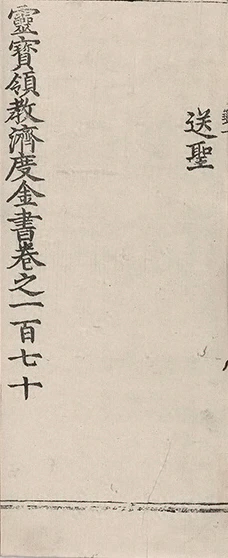 送聖
靈寶領教濟度金書卷之一百七十